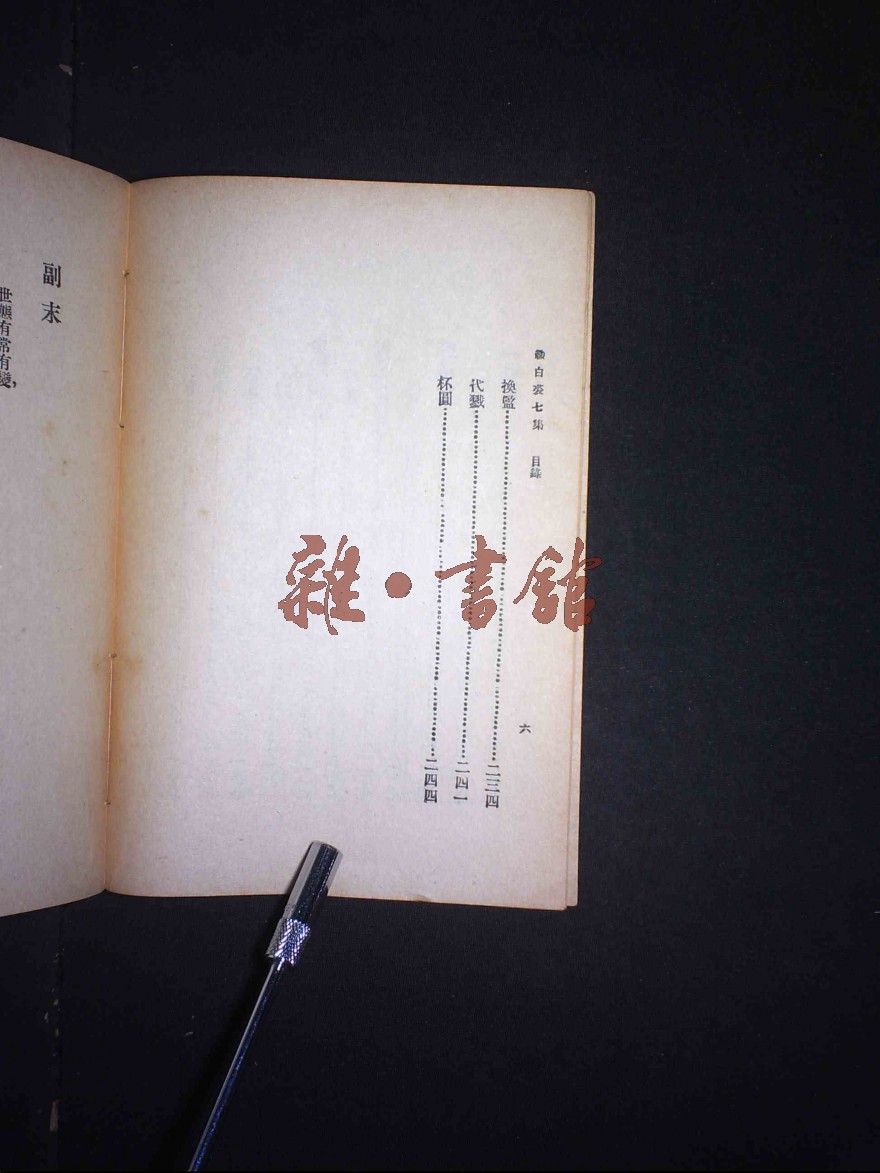 綴白裘七集 目錄
六
換監……………………二三四
代戮……………………二四一
杯圓……………………二四四
副末
世態有常有變，
雜•書館